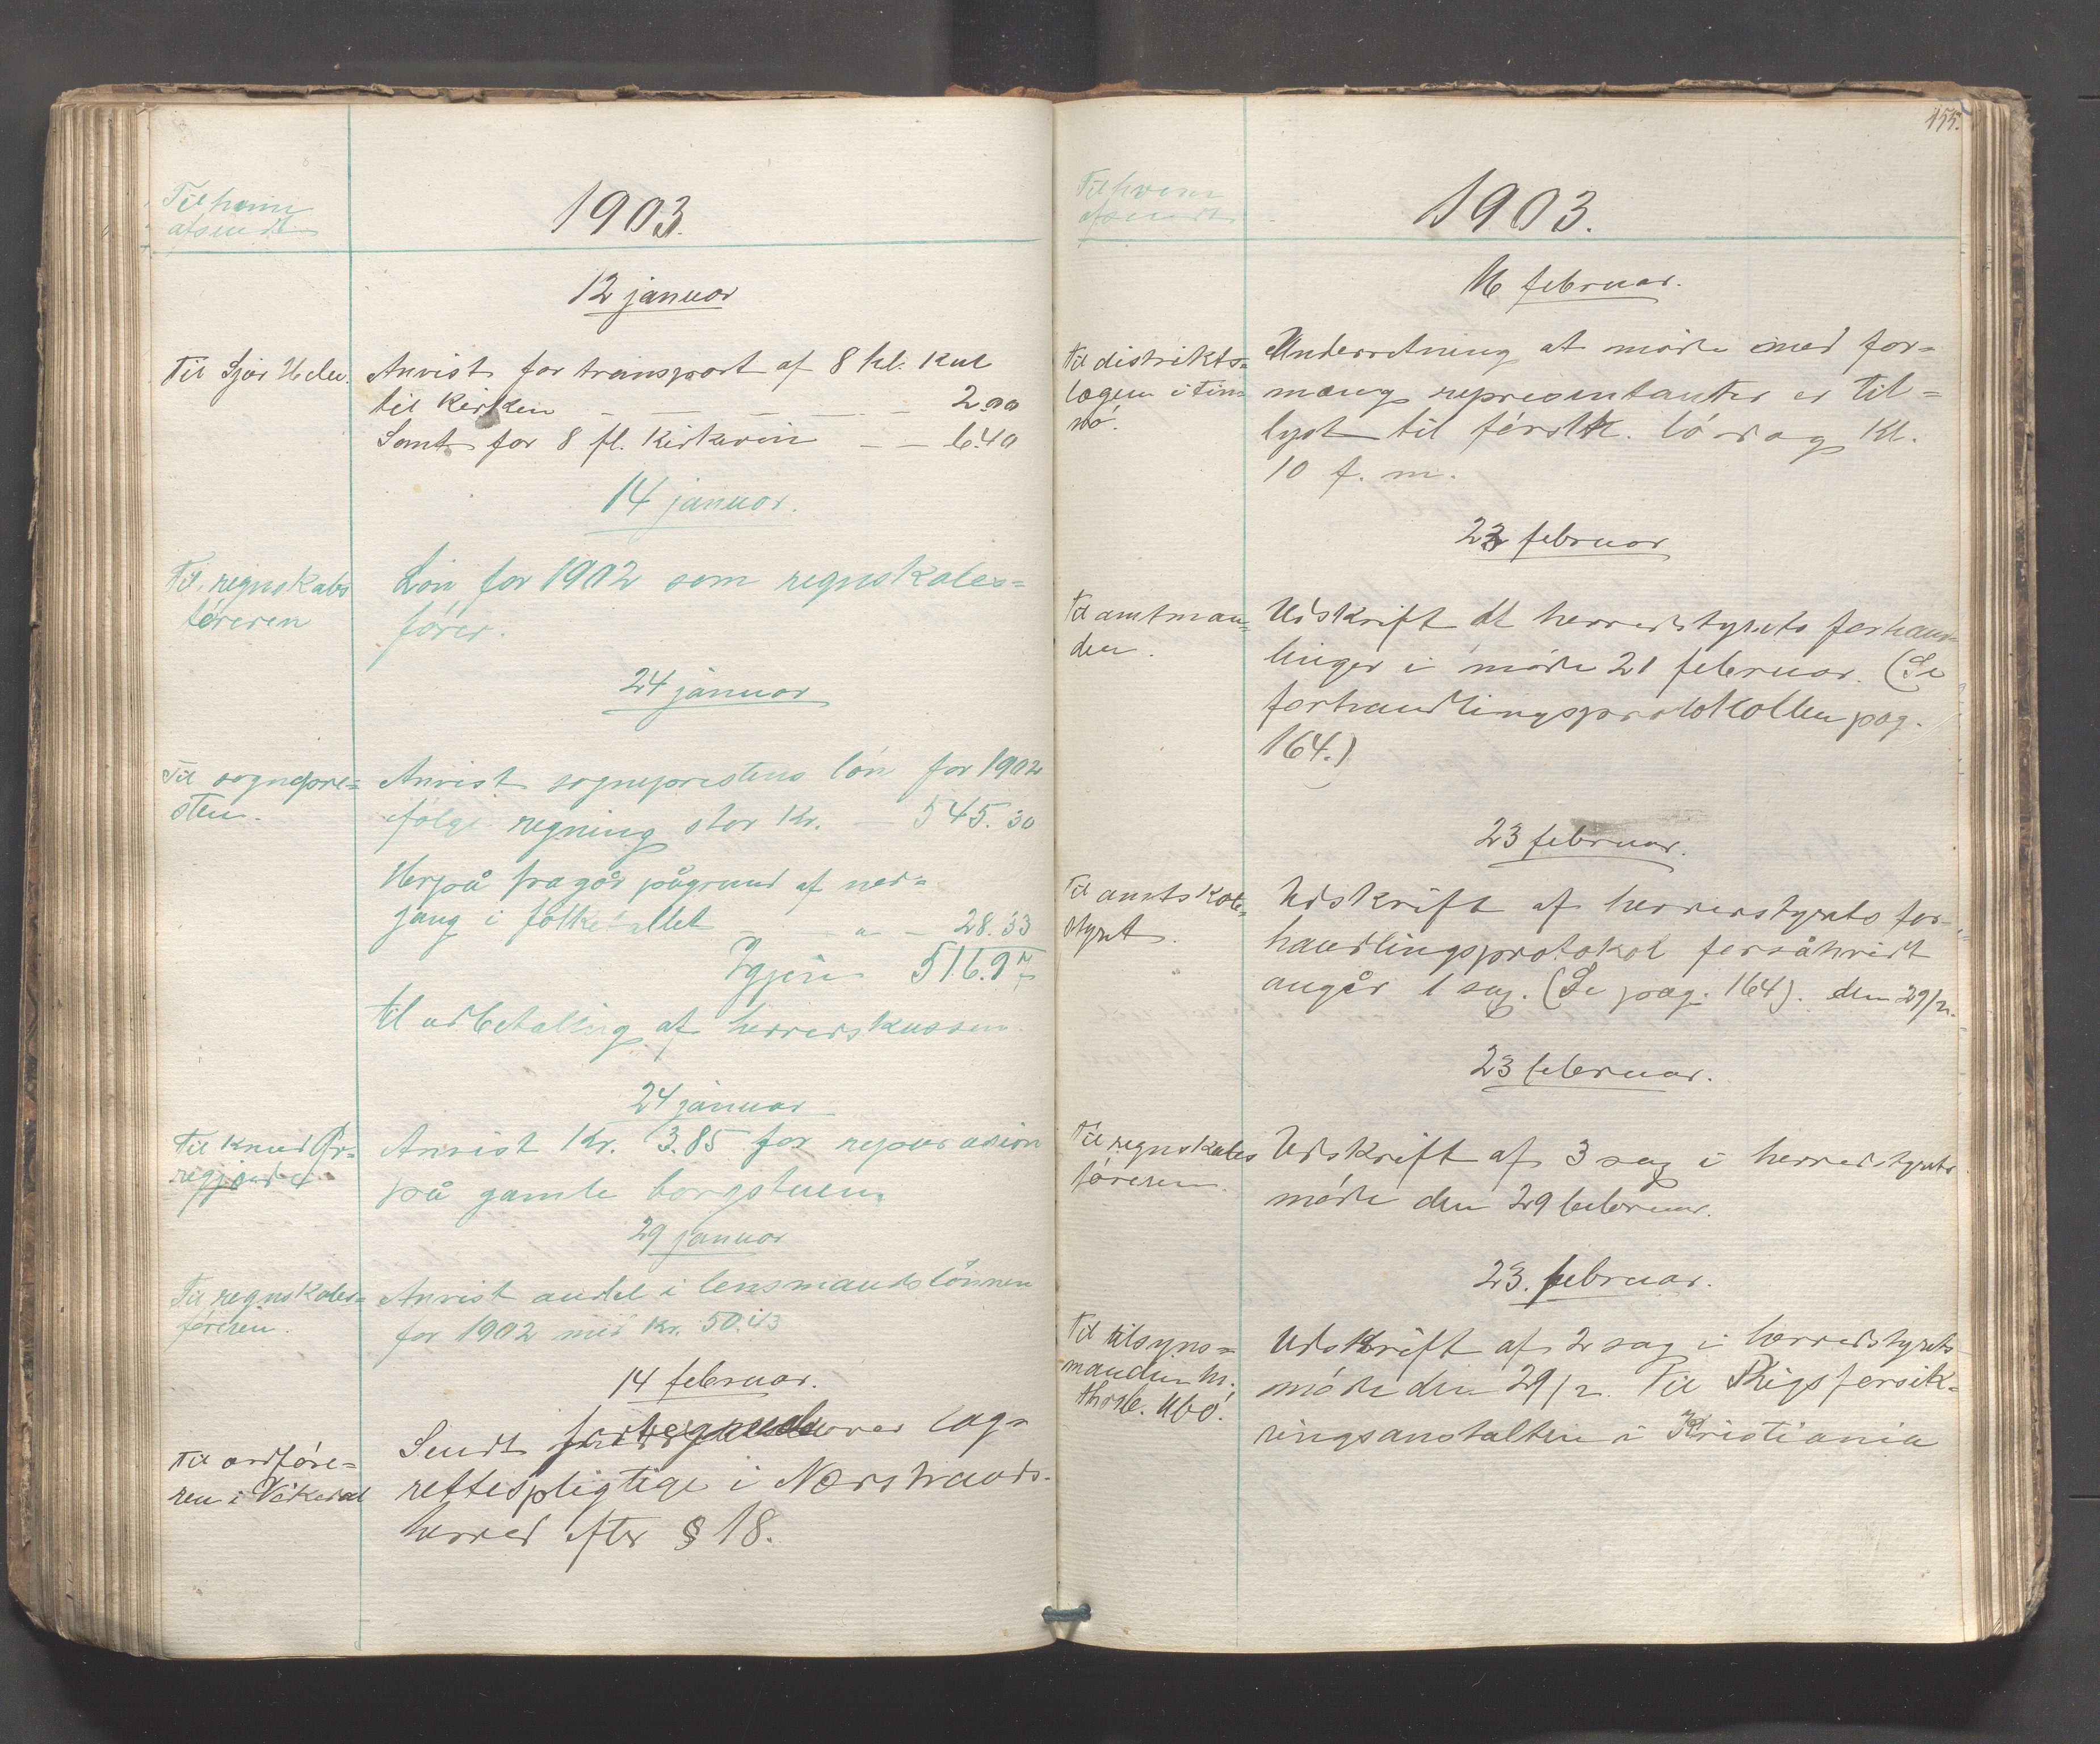 Til hvem
afsendt
1903.
12 januar
Til Sjur
Anvist for transport af 8 hl. Kul
til Kirken 2.00
Samt for 8 fl. Kirkevin 6.40
14 januar.
Til regnskabs
føreren
Løn for 1902 som regnskabs=
fører.
24 januar
Til sognepre=
sten.
Anvist sogneprestens løn for 1902
ifølge regning stor Kr. 545.30
Herpå fragår pågrund af ned=
gang i folketallet " 28.33
Igjen 516.97
til udbetaling af herredskassen.
24 januar
Til Knud
Anvist Kr. 3.85 for reparasion
på gamle borgstuen.
29 januar
Til regnskabs=
føreren.
Anvist andel i lensmandslønnen
for 1902 med Kr. 50.43
14 februar.
Til ordføre=
ren i Vikedal
Sendt fortegnelse over lag=
rettespligtige i Nærstrands
herred efter § 18.
155.
Til hvem
afsendt
1903.
16 februar.
Til distrikts=
lægen i Fin=
nø.
Underretning at møde med for=
mænd representanter er til=
lyst til førstk. lørdag Kl.
10 f. m.
23 februar
Til amtman=
den.
Udskrift af herredstyrets forhand=
linger i møde 21 februar. (Se
forhandlingsprotokollen pag.
164.)
23 februar.
Til amtskole=
styret.
Udskrift af herredstyrets for=
handlingsprotokol forsåvidt
angår 1 sag. (Se pag. 164). den 29/2.
23 februar.
Til regnskabs
føreren.
Udskrift af 3 sag i herredstyrets
møde den 29 februar.
23. februar.
Til tilsyns=
manden hr.
Udskrift af 2 sag i herredstyrets
møde den 29/2. Til Rigsforsik=
ringsanstalten i Kristiania